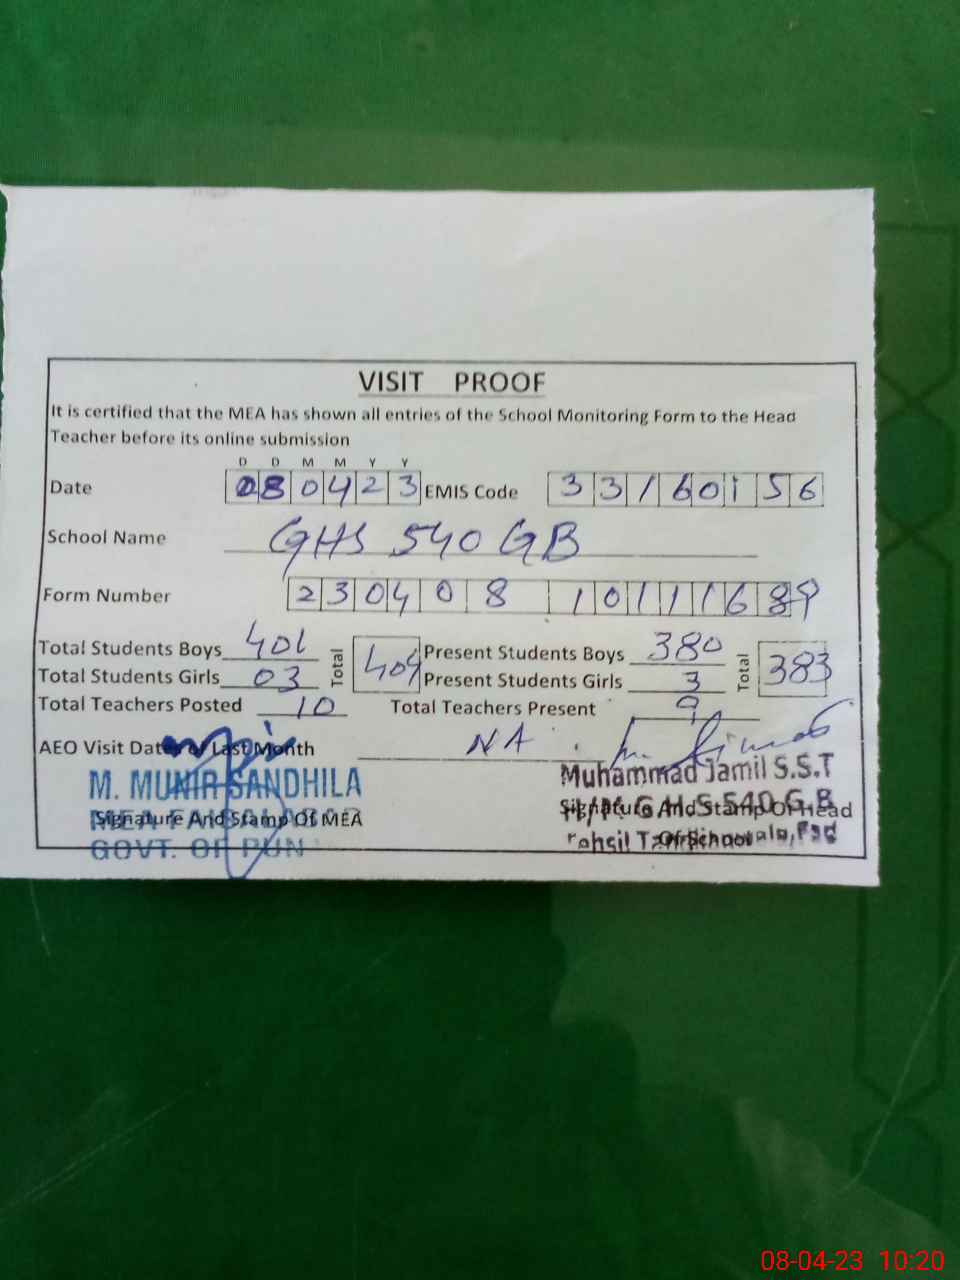 VISIT PROOF
It is certified that the MEA has shown all entries of the School Monitoring Form to the Head
Teacher before its online submission
D D M M Y Y
Date 080423 EMIS Code 33160156
School Name GHS 540 GB
Form Number 230408 1011168
Total Students Boys 401 Total 404 Present Students Boys 380 Total 383
Total Students Girls 03 Present Students Girls 3
Total Teachers Posted 10 Total Teachers Present 9
AEO Visit Date of Last Month NA
M. MUNIR SANDHILA
Muhammad Jamil S.S.T
Signature And Stamp Of MEA
MEA
GOVT. OF PUN
G.H.S 540 G.B
Signature And Stamp Of Head
Of School
Tehsil
08-04-23 10:20